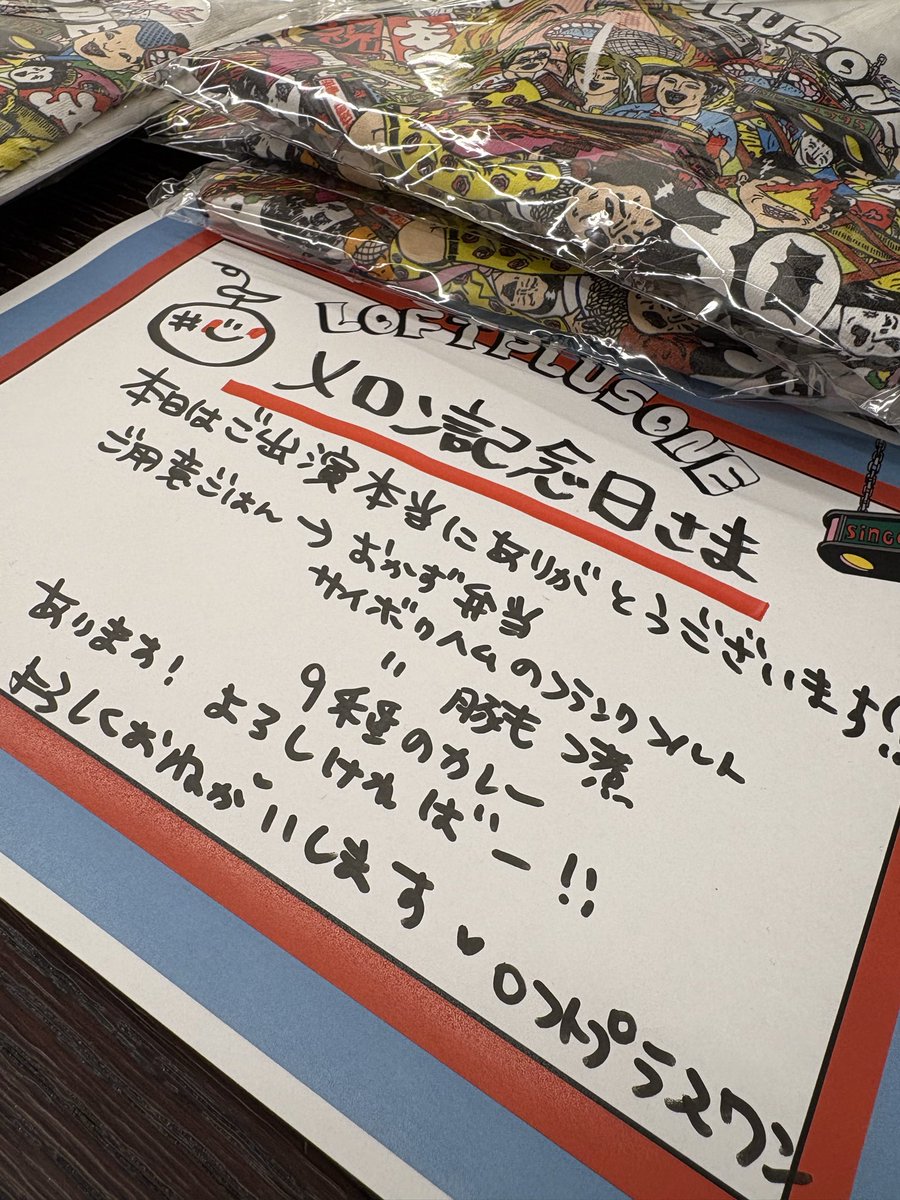 PLUSONE
30
th
LOFTPLUSONE
メロン記念日さま
本日はご出演本当にありがとうございます(!!
ご用意ごはん → おかず弁当
サイボクハムのフランクメルト
〃 豚もつ煮
9種のカレー
あります! よろしければー!!
よろしくおねがいします♥
ロフトプラスワン
since